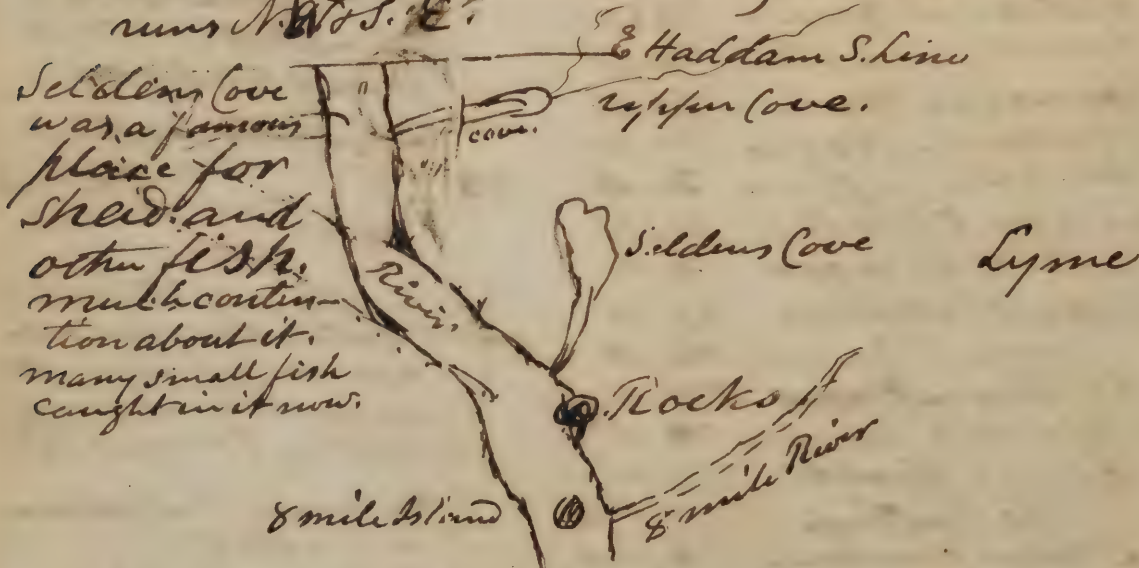 runs N.W & S.E.
E Haddam S. Line
upper Cove.
cove.
Seldens Cove
was a famous
place for
shad and
other fish.
much conten-
tion about it.
many small fish
caught in it now.
River
Seldens Cove
Lyme
Rocks
8 mile River
8 mile Island